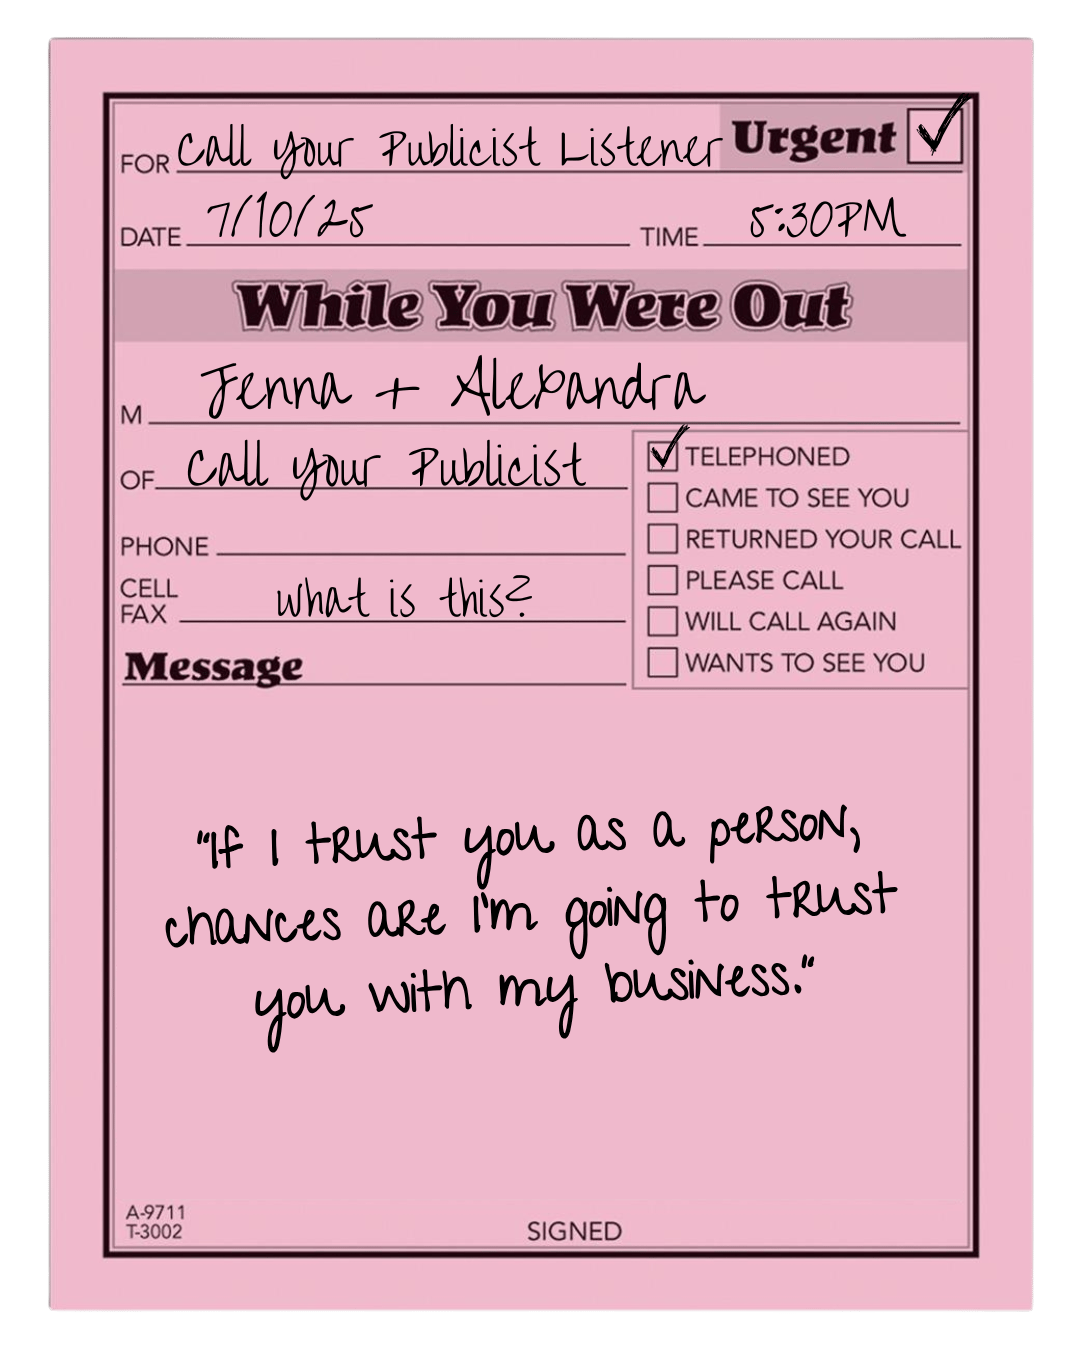 FOR Call your Publicist Listener Urgent
DATE 7/10/25 TIME 5:30PM
While You Were Out
M Jenna + Alexandra
OF Call your Publicist
TELEPHONED
CAME TO SEE YOU
PHONE
RETURNED YOUR CALL
CELL
FAX what is this?
PLEASE CALL
WILL CALL AGAIN
Message
WANTS TO SEE YOU
"If I trust you as a person,
chances are I'm going to trust
you with my business."
A-9711
T-3002
SIGNED